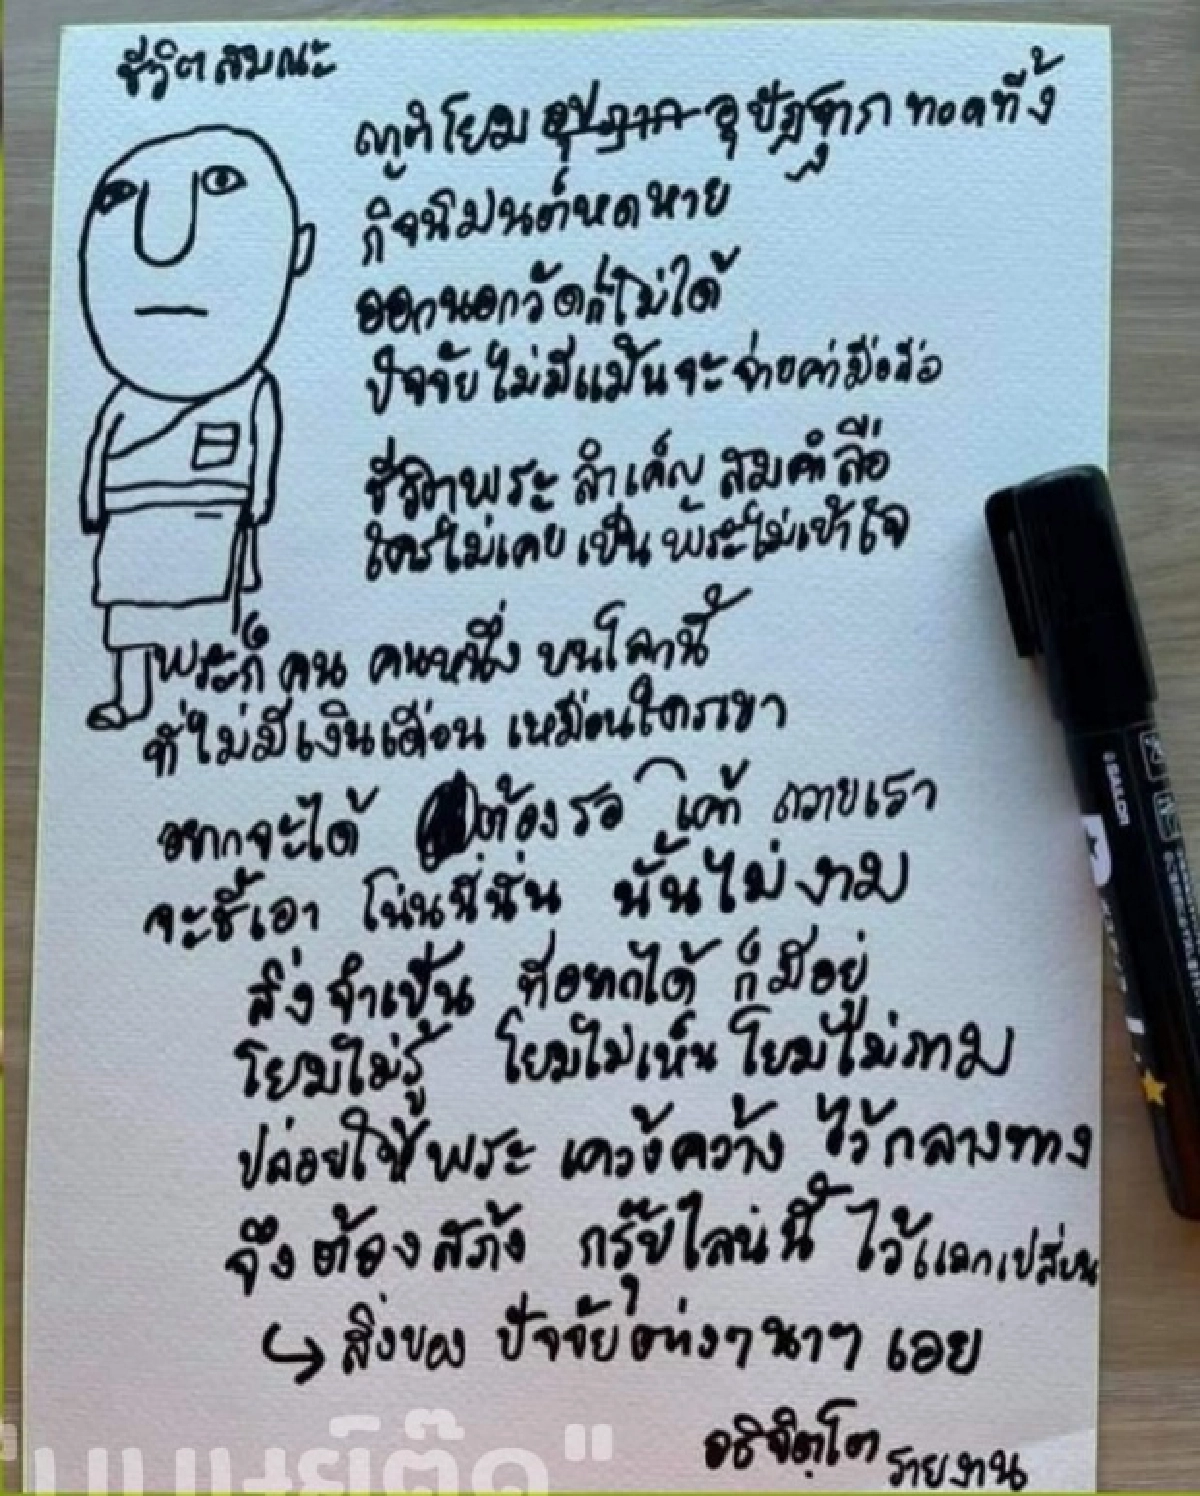 ชีวิตสมณะ
ญาติโยม อุปฏาก อุปัฏฐาก ทอดทิ้ง
กิจนิมนต์หดหาย
ออกนอกวัดก็ไม่ได้
ปัจจัยไม่มีแม้นจะจ่ายค่ามือถือ
ชีวิตพระ ลำเค็ญ สมคำลือ
ใครไม่เคย เป็น พระไม่เข้าใจ
พระก็ คน คนหนึ่ง บนโลกนี้
ที่ไม่มีเงินเดือน เหมือนใครเขา
อยากจะได้ ต้องรอ เค้า ถวายเรา
จะชี้เอา โน่นนี่นั่น นั้นไม่งาม
สิ่งจำเป็น ที่อยากได้ ก็มีอยู่
โยมไม่รู้ โยมไม่เห็น โยมไม่ถาม
ปล่อยให้พระ เคว้งคว้าง ไว้กลางทาง
จึงต้องสร้าง กรุ๊ปไลน์นี้ ไว้แลกเปลี่ยน
สิ่งของ ปัจจัยต่างๆ นาๆ เอย
อธิจิตฺโต รายงาน
BALLON